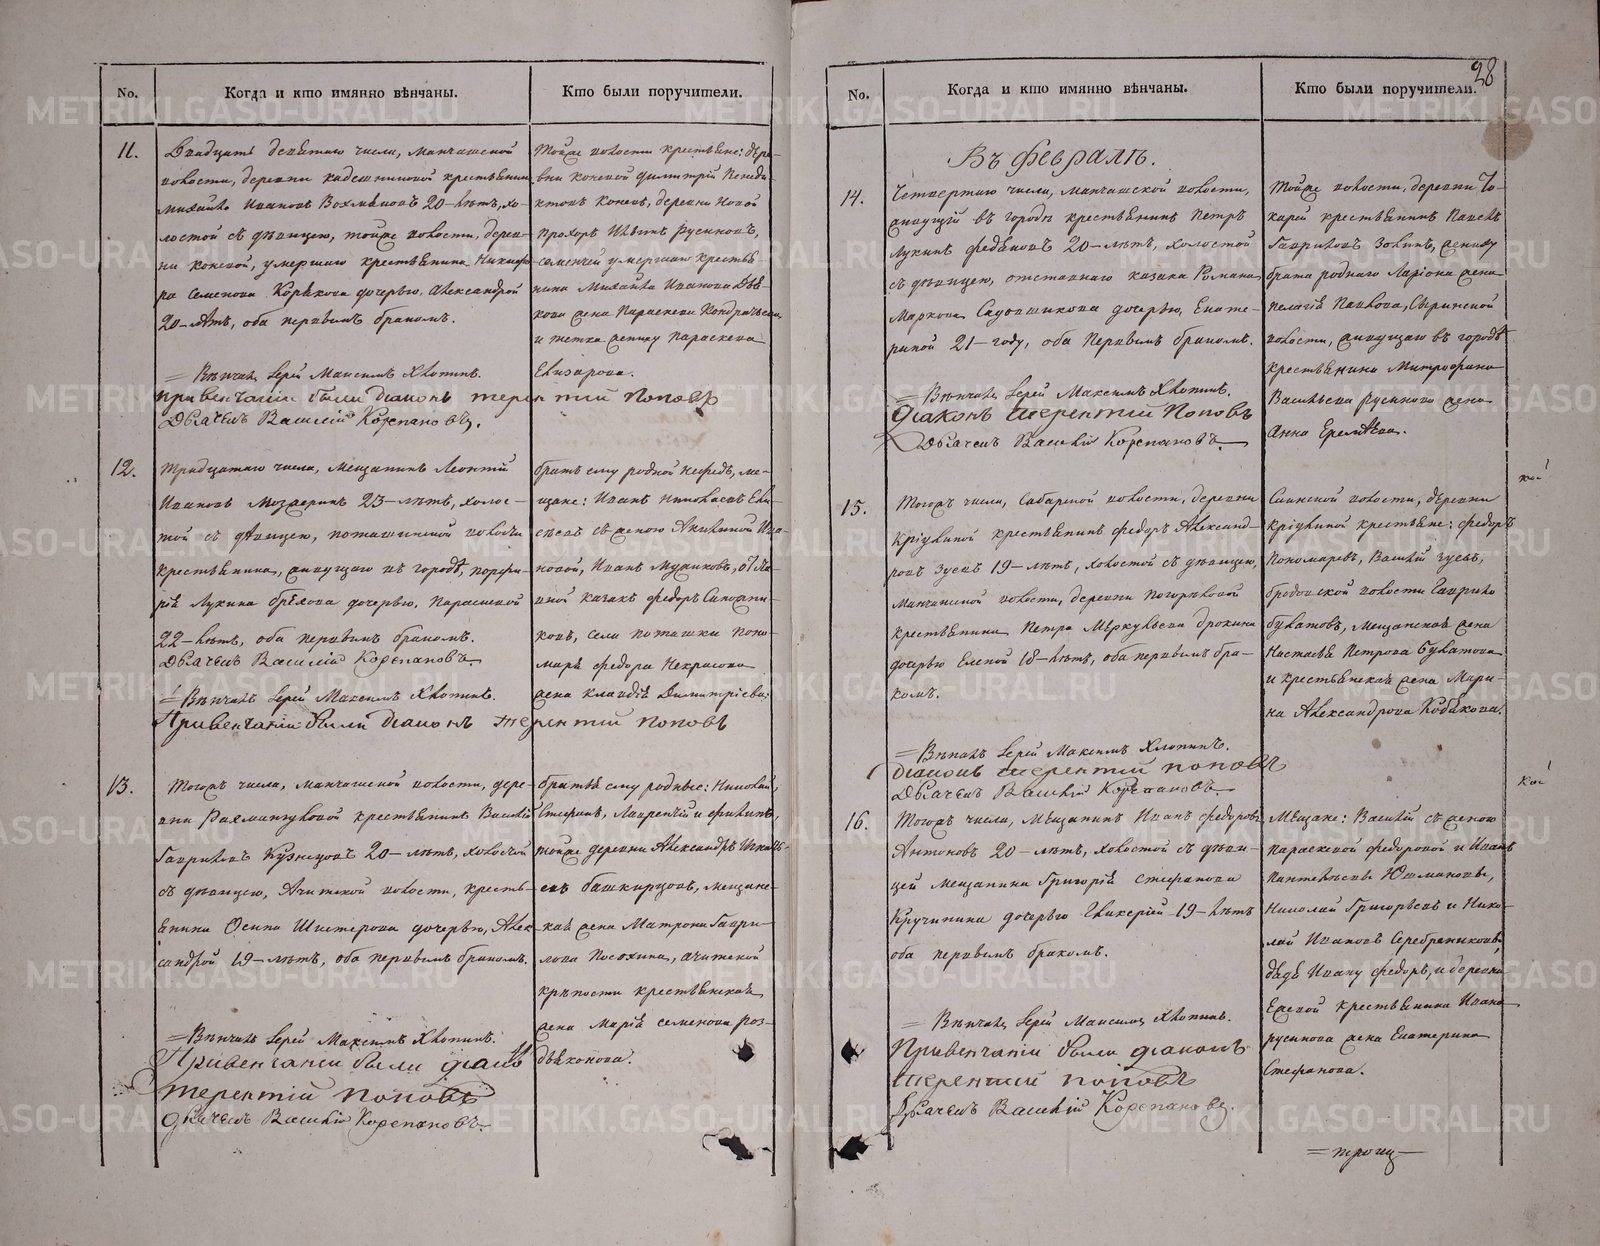 No.
Когда и кто имянно вѣнчаны.
Кто были поручители.
11.
Двадцать девятаго числа, Манчажской
волости, деревни крестьянинъ
Михайло Ивановъ Вохмяковъ 20-лѣтъ, хо-
лостой съ дѣвицею, тойже волости, дерев-
ни Коневой, умершаго крестьянина Никифо-
ра Семенова дочерью, Александрой
20-лѣтъ, оба первымъ бракомъ.
= Вѣнчалъ Іерей Максимъ Хлопинъ.
При венчаніи были Діаконъ терентій поповъ
Дьячекъ Василій Корепановъ.
Тойже волости крестьяне: дере-
вни Коневой Димитрій Венеди-
ктовъ Коневъ, деревни Новой
Прохоръ Ильинъ Русиновъ,
умершаго крестья-
нина Михайла Иванова
жена Параскева Кондратьева
и тетка жениху Параскева
Елизарова.
12.
Тридцатаго числа, мещанинъ Леонтій
Ивановъ 23-лѣтъ, холос-
той съ дѣвицею, поташинской волости
крестьянина, живущаго въ городѣ, порфи-
рія Лукина дочерью, Параскевой
22-лѣтъ, оба первымъ бракомъ.
Дьячекъ Василій Корепановъ
= Вѣнчалъ Іерей Максимъ Хлопинъ.
При венчаніи были діаконъ терентій поповъ
братъ ему родной Нефедъ, ме-
щане: Иванъ Николаевъ Ели-
сѣевъ съ женою Акилиной Ива-
новой, Иванъ
казакъ Федоръ Сапожни-
ковъ, села поташки поно-
маря Федора Некрасова
жена Клавдія Димитріева.
13.
Тогожъ числа, Манчажской волости, дере-
вни Рахмангуловой крестьянинъ Василій
Гавриловъ Кузнецовъ 20-лѣтъ, холостой
съ дѣвицею, Ачитской волости, кресть-
янина Осипа Шистерова дочерью, Алек-
сандрой 19-лѣтъ, оба первымъ бракомъ.
= Вѣнчалъ Іерей Максимъ Хлопинъ.
При венчаніи были діаконъ
терентій поповъ
Дьячекъ Василій Корепановъ.
братья ему родные: Николай,
Стефанъ, Лаврентій и Филипъ,
тойже деревни Александръ
Башкирцовъ, мещане-
кая жена Матрона Гаври-
лова Посохина, Ачитской
крѣпости крестьянская
жена Марія Семенова Роз-
дьяконова.
28
No.
Когда и кто имянно вѣнчаны.
Кто были поручители.
Въ Февралѣ.
14.
Четвертаго числа, Манчажской волости,
живущій въ городѣ крестьянинъ Петръ
Лукинъ Федяновъ 20-лѣтъ, холостой
съ дѣвицею, отставнаго казака Романа
Маркова Садовщикова дочерью, Екате-
риной 21-году, оба первымъ бракомъ.
= Вѣнчалъ Іерей Максимъ Хлопинъ.
Діаконъ терентій Поповъ
Дьячекъ Василій Корепановъ
Тойже волости, деревни То-
карей крестьянинъ Павелъ
Гавриловъ Зовинъ, жениху
брата роднаго Ларіона жена
Пелагія Павлова, Сыринской
волости, живущаго въ городѣ
крестьянина Митрофана
Васильева Русинова жена
Анна Еремѣева.
15.
Тогожъ числа, Сабарской волости, деревни
Кріулиной крестьянинъ Федоръ Александ-
ровъ Зуевъ 19-лѣтъ, холостой съ дѣвицею,
Манчажской волости, деревни Погорѣловой
крестьянина Петра Меркульева Дрокина
дочерью Еленой 18-лѣтъ, оба первымъ бра-
комъ.
= Вѣнчалъ Іерей Максимъ Хлопинъ.
діаконъ терентій поповъ
Дьячекъ Василій Корепановъ
волости, деревни
Кріулиной крестьяне: Федоръ
Пономаревъ, Василій Зуевъ,
волости Гаврило
Булатовъ, мещанская жена
Настасья Петрова Булатова
и крестьянская жена Мари-
на Александрова Кобякова.
16.
Тогожъ числа, мещанинъ Иванъ Федоровъ
Антоновъ 20-лѣтъ, холостой съ дѣви-
цей мещанина Григорія Стефанова
Кручинина дочерью Гликерій 19-лѣтъ
оба первымъ бракомъ.
= Вѣнчалъ Іерей Максимъ Хлопинъ.
При венчаніи были діаконъ
терентій поповъ
Дьячекъ Василій Корепановъ.
Мещане: Василій съ женою
Параскевой Федоровой и Иванъ
Пантелѣевъ Юшмановы,
Николай Григорьевъ и Нико-
лай Ивановъ Серебряниковы,
дядя Ивану Федоръ, и деревни
Ивана
Русинова жена Екатерина
Стефанова.